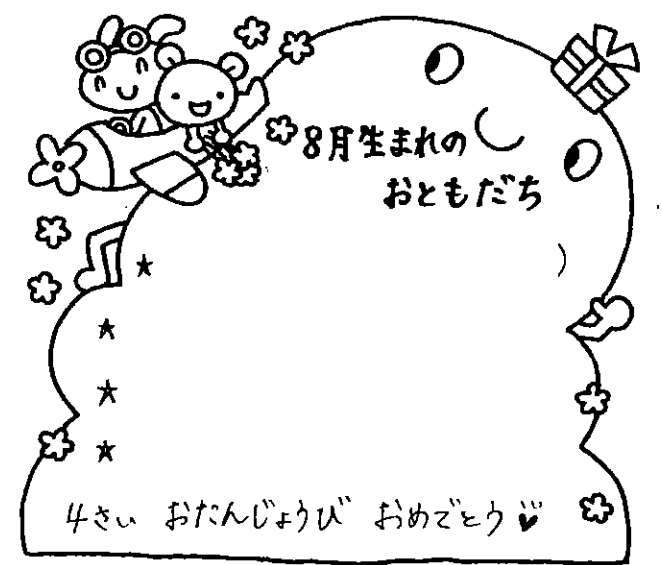 8月生まれの
おともだち
★
★
★
★
4さい おたんじょうび おめでとう♥